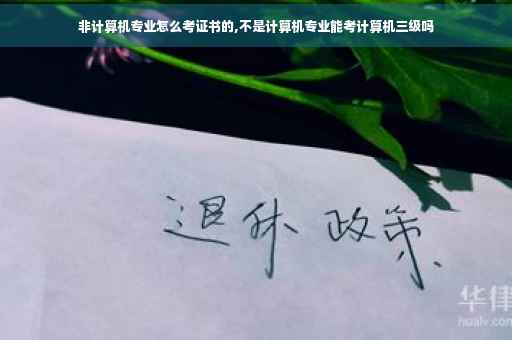 非计算机专业怎么考证书的,不是计算机专业能考计算机三级吗
退休 政策
华律
hualv.com